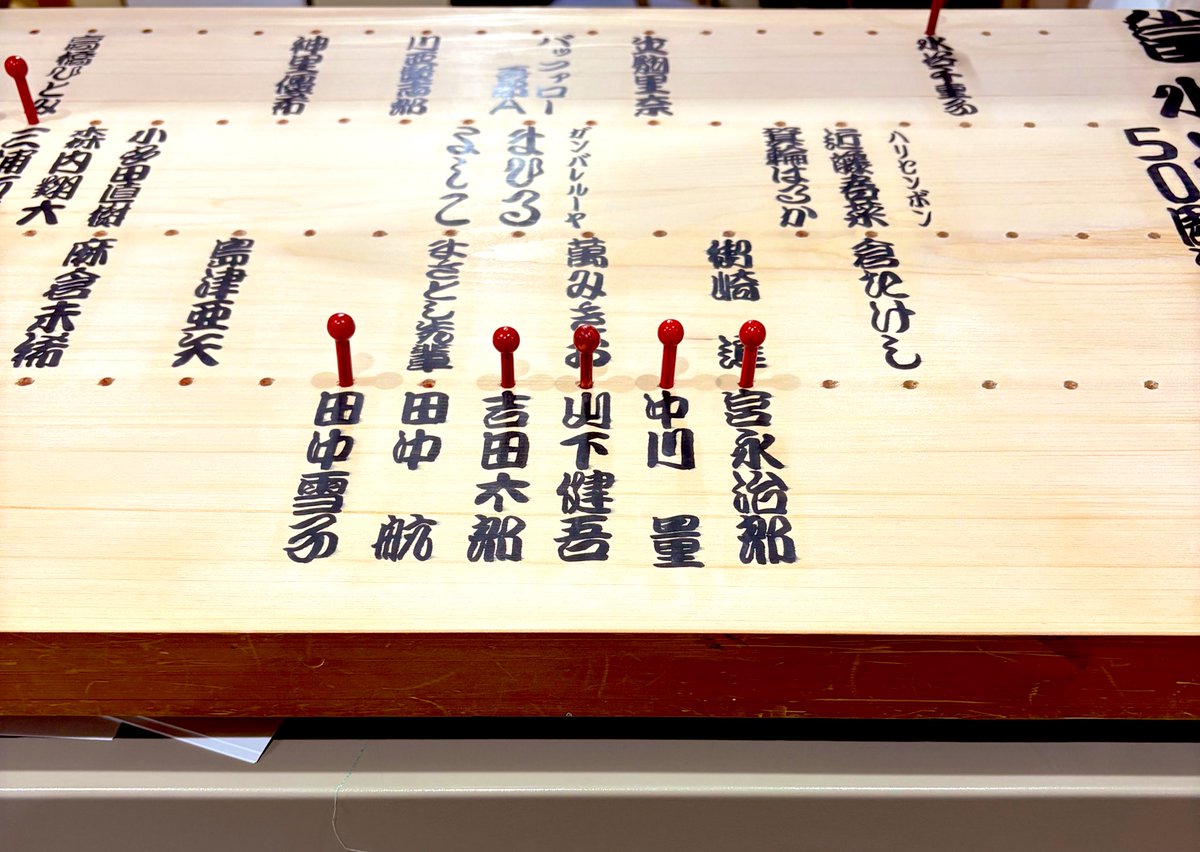 50周
水谷千重子
生駒里奈
バッファロー
吾郎A
川西賢志郎
神里優希
高橋ひとみ
ハリセンボン
近藤春菜
箕輪はるか
ガンバレルーヤ
まひる
よしこ
小多田直樹
森内翔大
三浦
倉たけし
萬みきお
まさとし先輩
島津亜矢
麻倉未稀
宮永治郎
中川 量
山下健吾
吉田太郎
田中 航
田中雪子